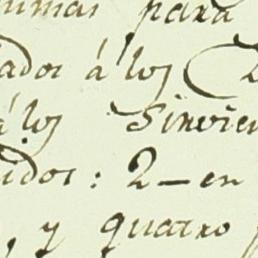 para
ados á los
á los Sirvien
idos: 2 — en
, y quatro